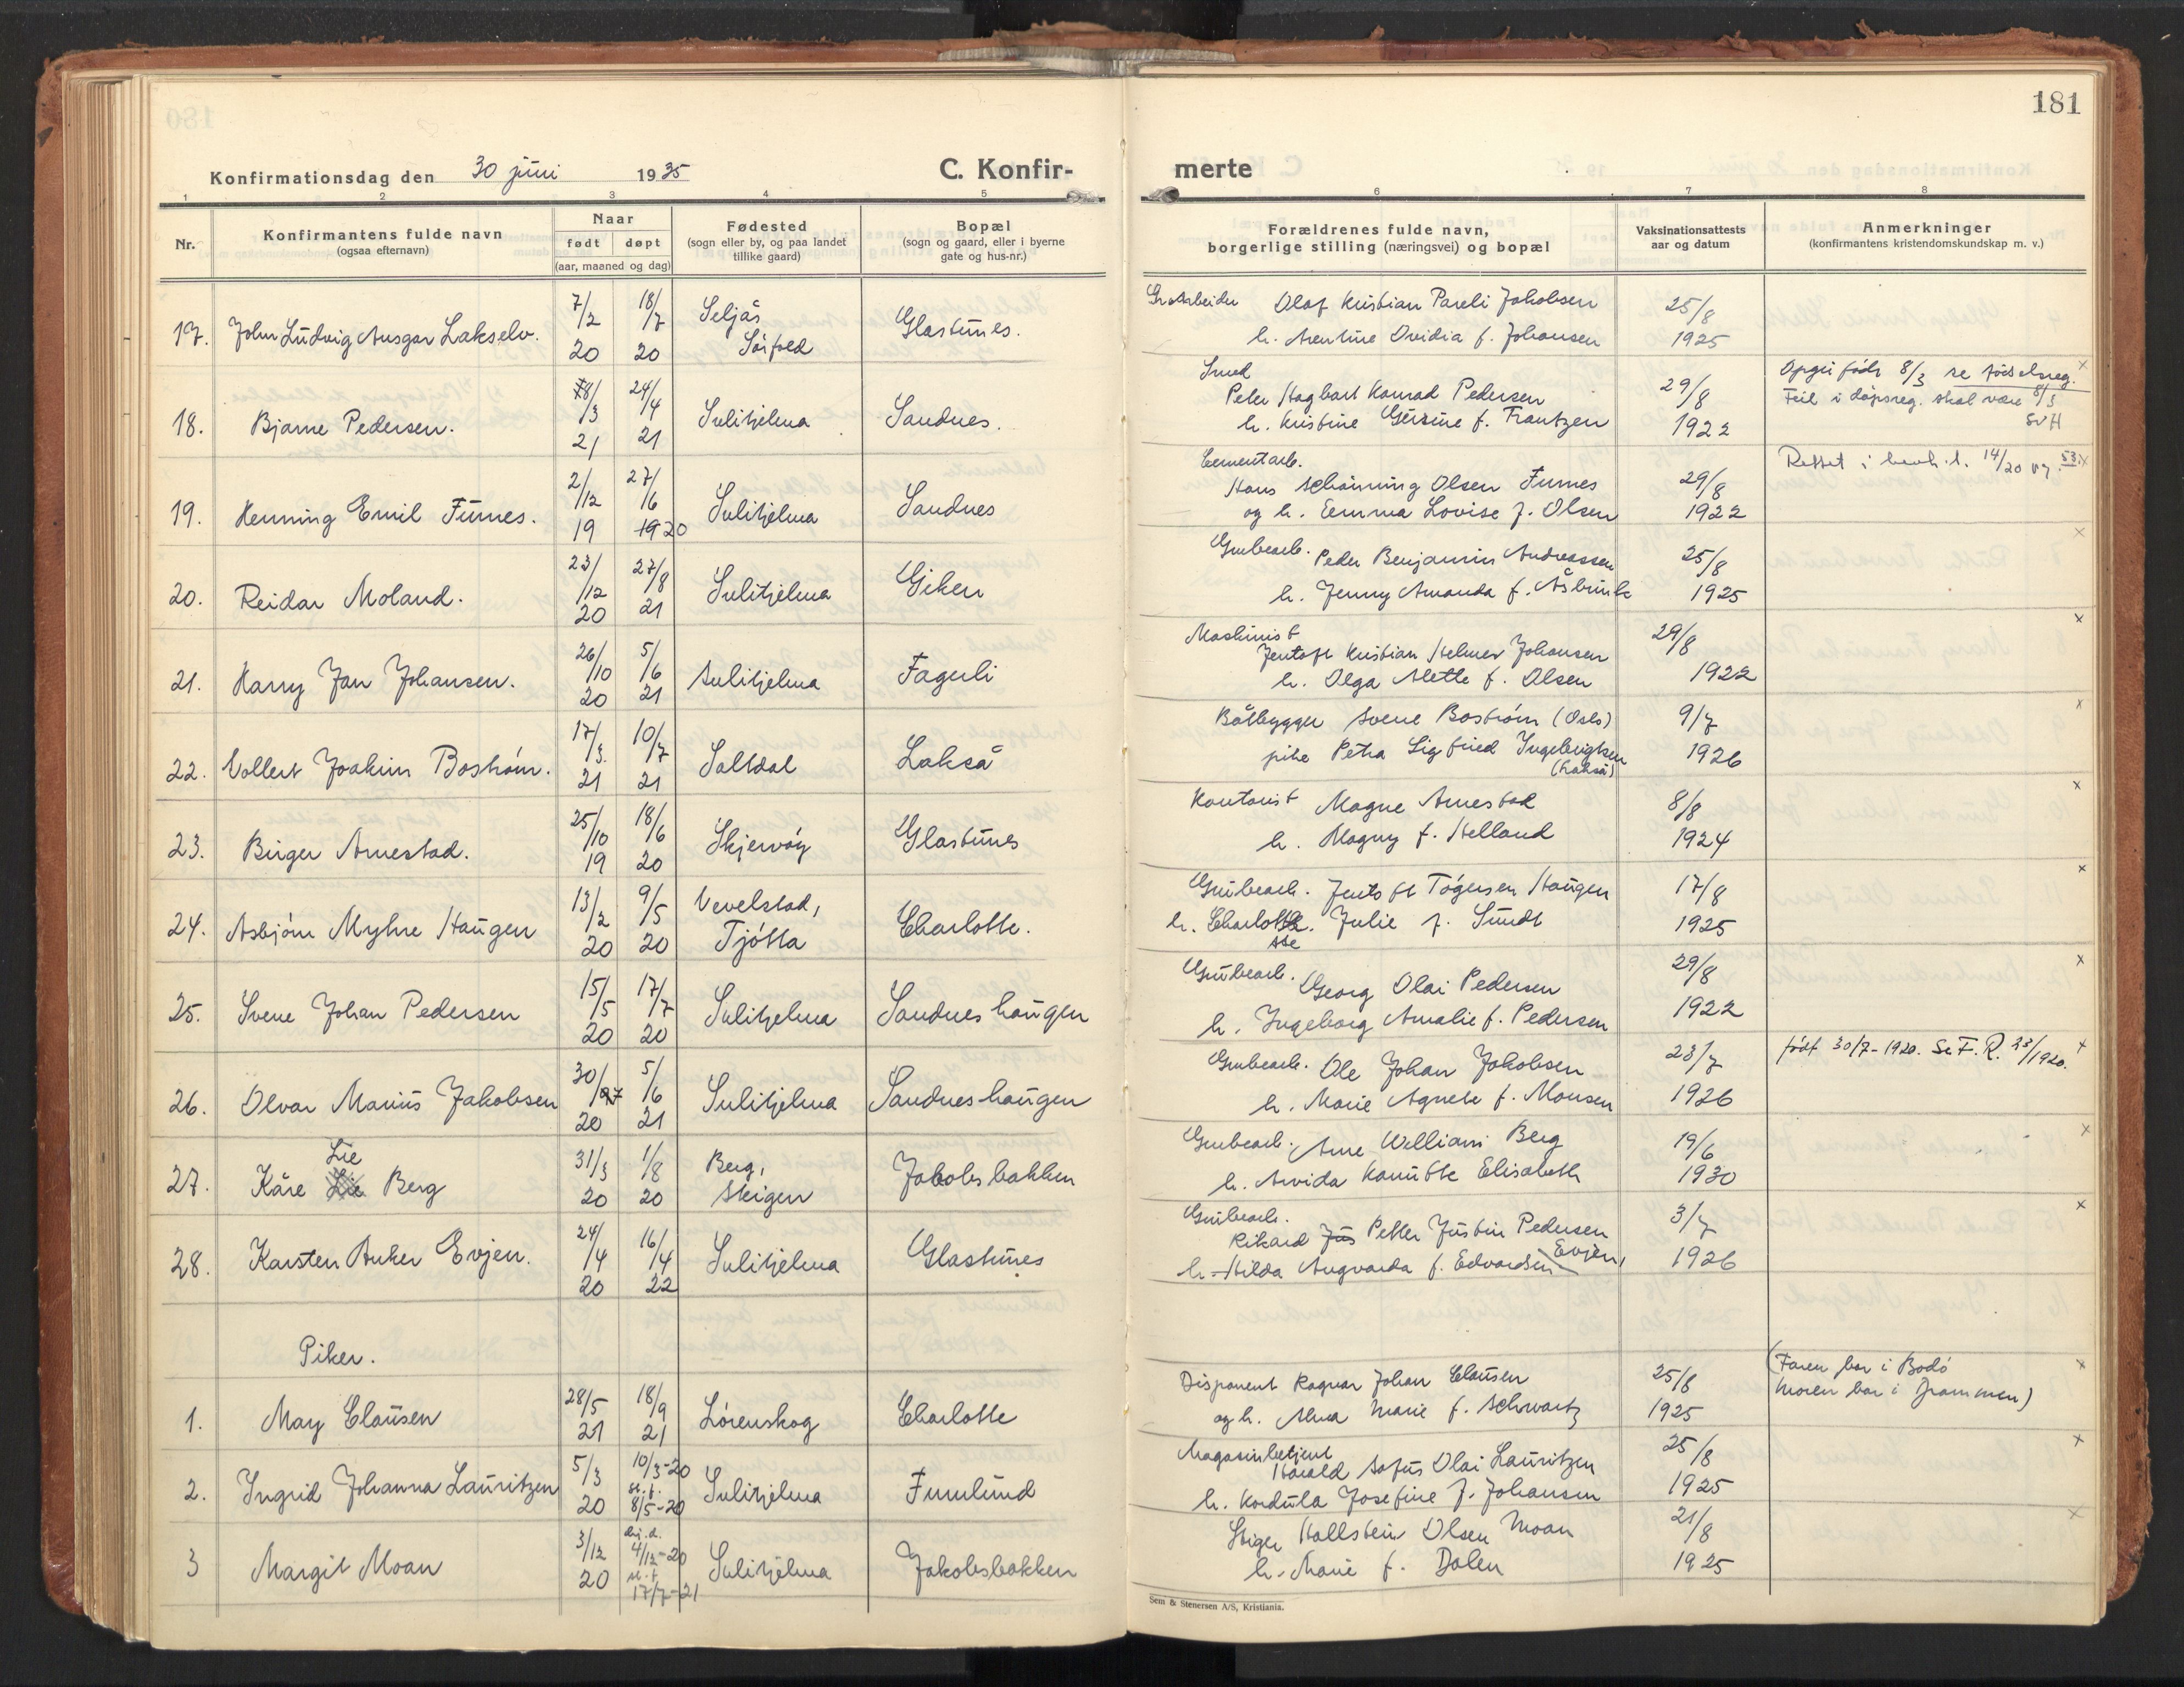 181
Konfirmationsdag den 30 juni 1935
C. Konfir-
merte
1 2 3 4 5 6 7 8
Nr.
Konfirmantens fulde navn
(ogsaa efternavn)
Naar
født døpt
(aar, maaned og dag)
Fødested
(sogn eller by, og paa landet
tillike gaard)
Bopæl
(sogn og gaard, eller i byerne
gate og hus-nr.)
Forældrenes fulde navn,
borgerlige stilling (næringsvei) og bopæl
Vaksinationsattests
aar og datum
Anmerkninger
(konfirmantens kristendomskundskap m. v.)
17. John Ludvig Ansgar Lakselv. 7/2 20 18/7 20 Seljås Sørfold Glastunes.
Olaf Kristian Pareli Jakobsen
h. Arentine Ovidia f. Johansen
25/8 1925
18. Bjarne Pedersen. 8/3 21 24/4 21 Sulitjelma Sandnes.
Smed
Peter Hagbart Konrad Pedersen
h. Kristine Gurine f. Frantzen
29/8 1922
Opgir født 8/3 se fødselsreg. x
Feil i døpsreg. skal være 8/3
SvH
19. Henning Emil Furnes. 2/12 19 27/6 1920 Sulitjelma Sandnes
Cementarb.
Hans Schønning Olsen Furnes
og h. Emma Lovise f. Olsen
29/8 1922
Rettet i henh. t. 14/20 53. x
20. Reidar Moland. 23/12 20 27/8 21 Sulitjelma Giken
Grubearb. Peder Benjamin Andreassen
h. Jenny Amanda f. Åsbrink
25/8 1925
x
21. Harry Jan Johansen. 26/10 20 5/6 21 Sulitjelma Fagerli
Maskinist
Jentoft Kristian Helmer Johansen
h. Olga Mette f. Olsen
29/8 1922
x
22. Vollert Joakim Bostrøm. 17/3. 21 10/7 21 Saltdal Lakså
Båtbygger Svene Bostrøm (Oslo)
pike Petra Sigfried Ingebrigtsen
(Lakså)
9/7 1926
x
23. Birger Arnestad. 25/10 19 18/6 20 Skjervøy Glastunes
Kontorist Magne Arnestad
h. Magny f. Helland
8/8 1924
x
24. Asbjørn Myhre Haugen 13/2 20 9/5 20 Vevelstad, Tjøtta Charlotte.
Grubearb. Jentoft Tøgersen Haugen
h. Charlotte Julie f. Sundt
17/8 1925
x
25. Svene Johan Pedersen 15/5 20 17/7 20 Sulitjelma Sandneshaugen
Grubearb. Georg Olai Pedersen
h. Ingeborg Amalie f. Pedersen
29/8 1922
x
26. Olvar Marius Jakobsen 30/7 20 5/6 21 Sulitjelma Sandneshaugen
Grubearb. Ole Johan Jakobsen
h. Marie Agnete f. Monsen
23/7 1926
født 30/7-1920. Se F. R. 23/1920. x
27. Kåre Lie Berg 31/3 20 1/8 20 Berg, Steigen Jakobsbakken
Grubearb. Arne William Berg
h. Arvida Kamitte Elisabeth
19/6 1930
x
28. Karsten Anker Evjen. 24/4 20 16/4 22 Sulitjelma Glastunes
Grubearb.
Rikard Petter Justin Pedersen
Evjen,
h. Hilda Angvarda f. Edvardsen
3/7 1926
x
Piker.
1. May Clausen 28/5 21 18/9 21 Lørenskog Charlotte
Disponent Ragnar Johan Clausen
og h. Alma Marie f. Schwartz
25/8 1925
(Faren bor i Bodø
Moren bor i Drammen) x
2. Ingrid Johanna Lauritzen 5/3 20 10/3-20 st. f. 8/5-20 Sulitjelma Furulund
Magasinbetjent
Harald Sofus Olai Lauritzen
h. Kordula Josefine f. Johansen
25/8 1925
x
3 Margit Moan 3/12 20 hj. d. 4/12-20 st. f. 17/7-21 Sulitjelma Jakobsbakken
Stiger Hallstein Olsen Moan
h. Marie f. Dalen
21/8 1925
x
Sem & Stenersen A/S, Kristiania.